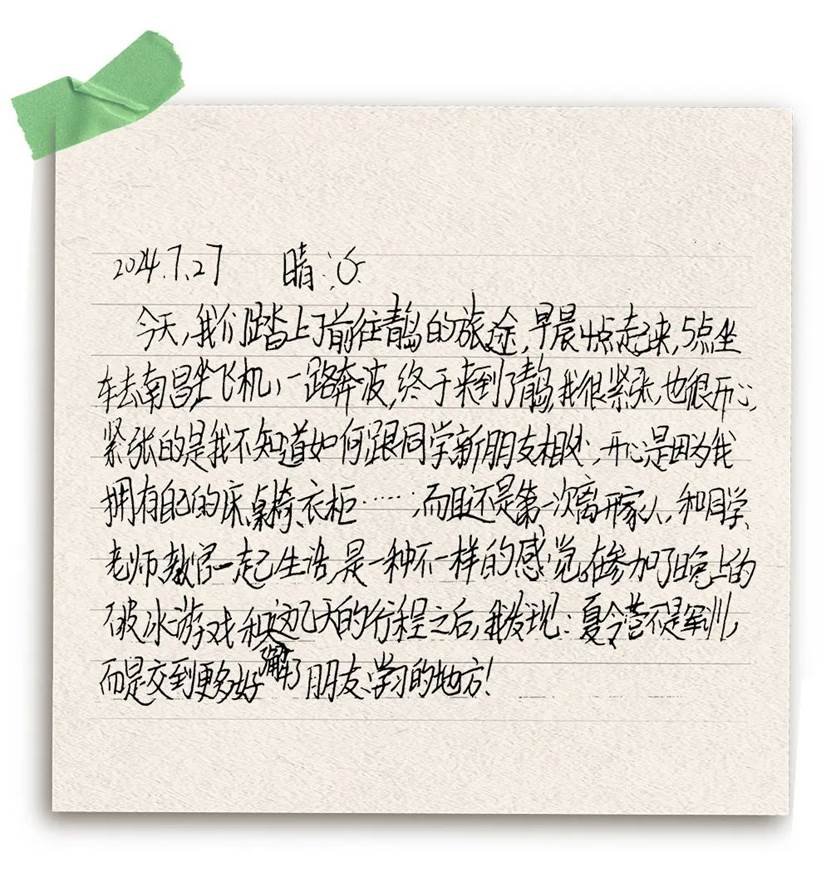 2024.7.27 晴
今天,我们踏上了前往青岛的旅途,早晨4点起来,5点坐
车去南昌坐飞机,一路奔波,终于来到了青岛,我很紧张,也很开心,
紧张的是我不知道如何跟同学新朋友相处,开心是因为我
拥有自己的床、桌、椅、衣柜……,而且还是第一次离开家人,和同学、
老师、教官一起生活,是一种不一样的感觉。在参加了晚上的
破冰游戏和这几天的行程之后,我发现:夏令营不是军训,
了解
而是交到更多好朋友、学习的地方!